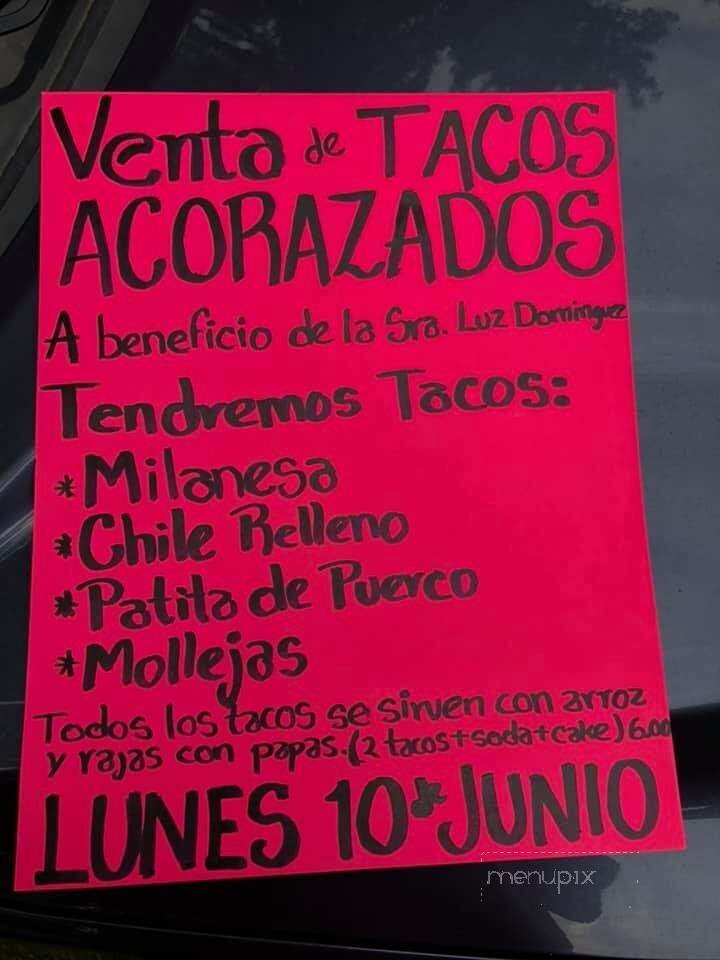 Venta de TACOS
ACORAZADOS
A beneficio de la Sra. Luz Dominguez
Tendremos Tacos:
*Milanesa
*Chile Relleno
*Patita de Puerco
*Mollejas
Todos los tacos se sirven con arroz
y rajas con papas.(2 tacos+soda+cake)6.00
LUNES 10 de JUNIO
menupix